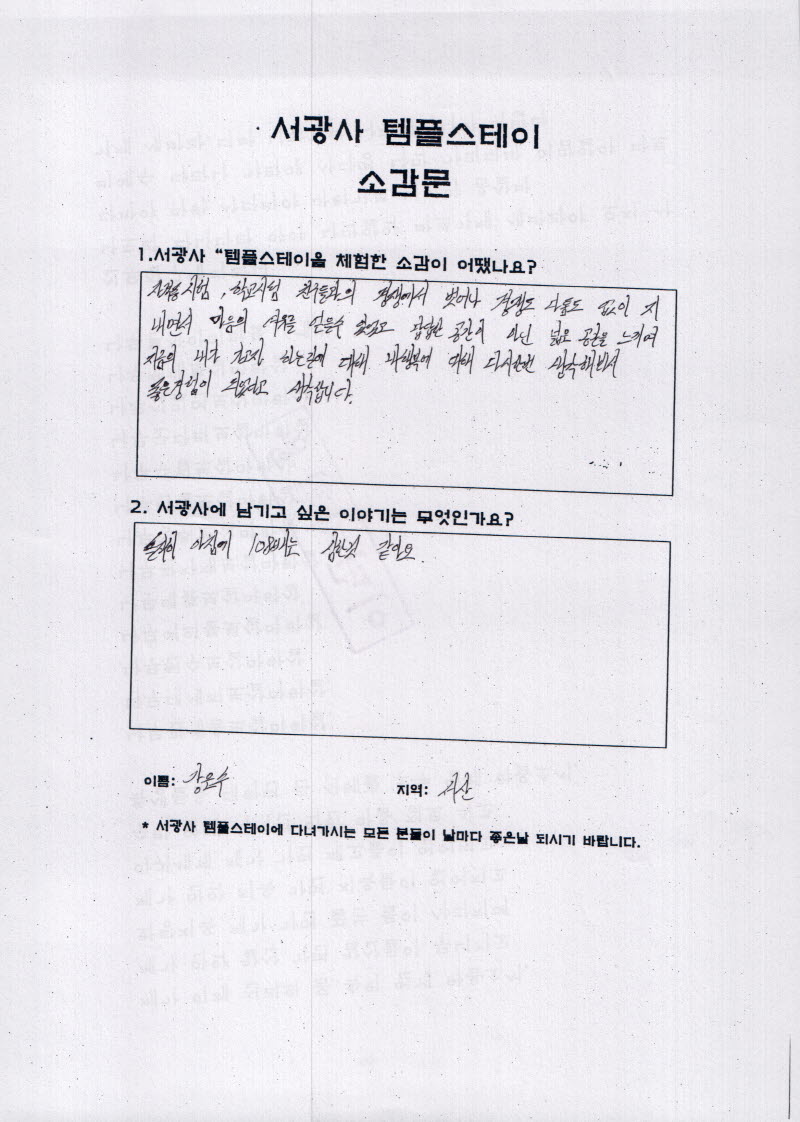 서광사 템플스테이
소감문
1.서광사 “템플스테이을 체험한 소감이 어땠나요?
시험, 학교시험 친구들과의 경쟁에서 벗어나 경쟁도 다툼도 없이 지
내면서 마음의 여유를 얻을수 있었고 답답한 공간이 아닌 넓은 공간을 느끼며
지금의 내가 하는일에 대해 내행복에 대해 다시한번 생각해봐서
좋은경험이 되었다고 생각합니다.
2. 서광사에 남기고 싶은 이야기는 무엇인가요?
아침에 108배는 심한것 같아요.
이름: 강은수
지역: 서산
* 서광사 템플스테이에 다녀가시는 모든 분들이 날마다 좋은날 되시기 바랍니다.